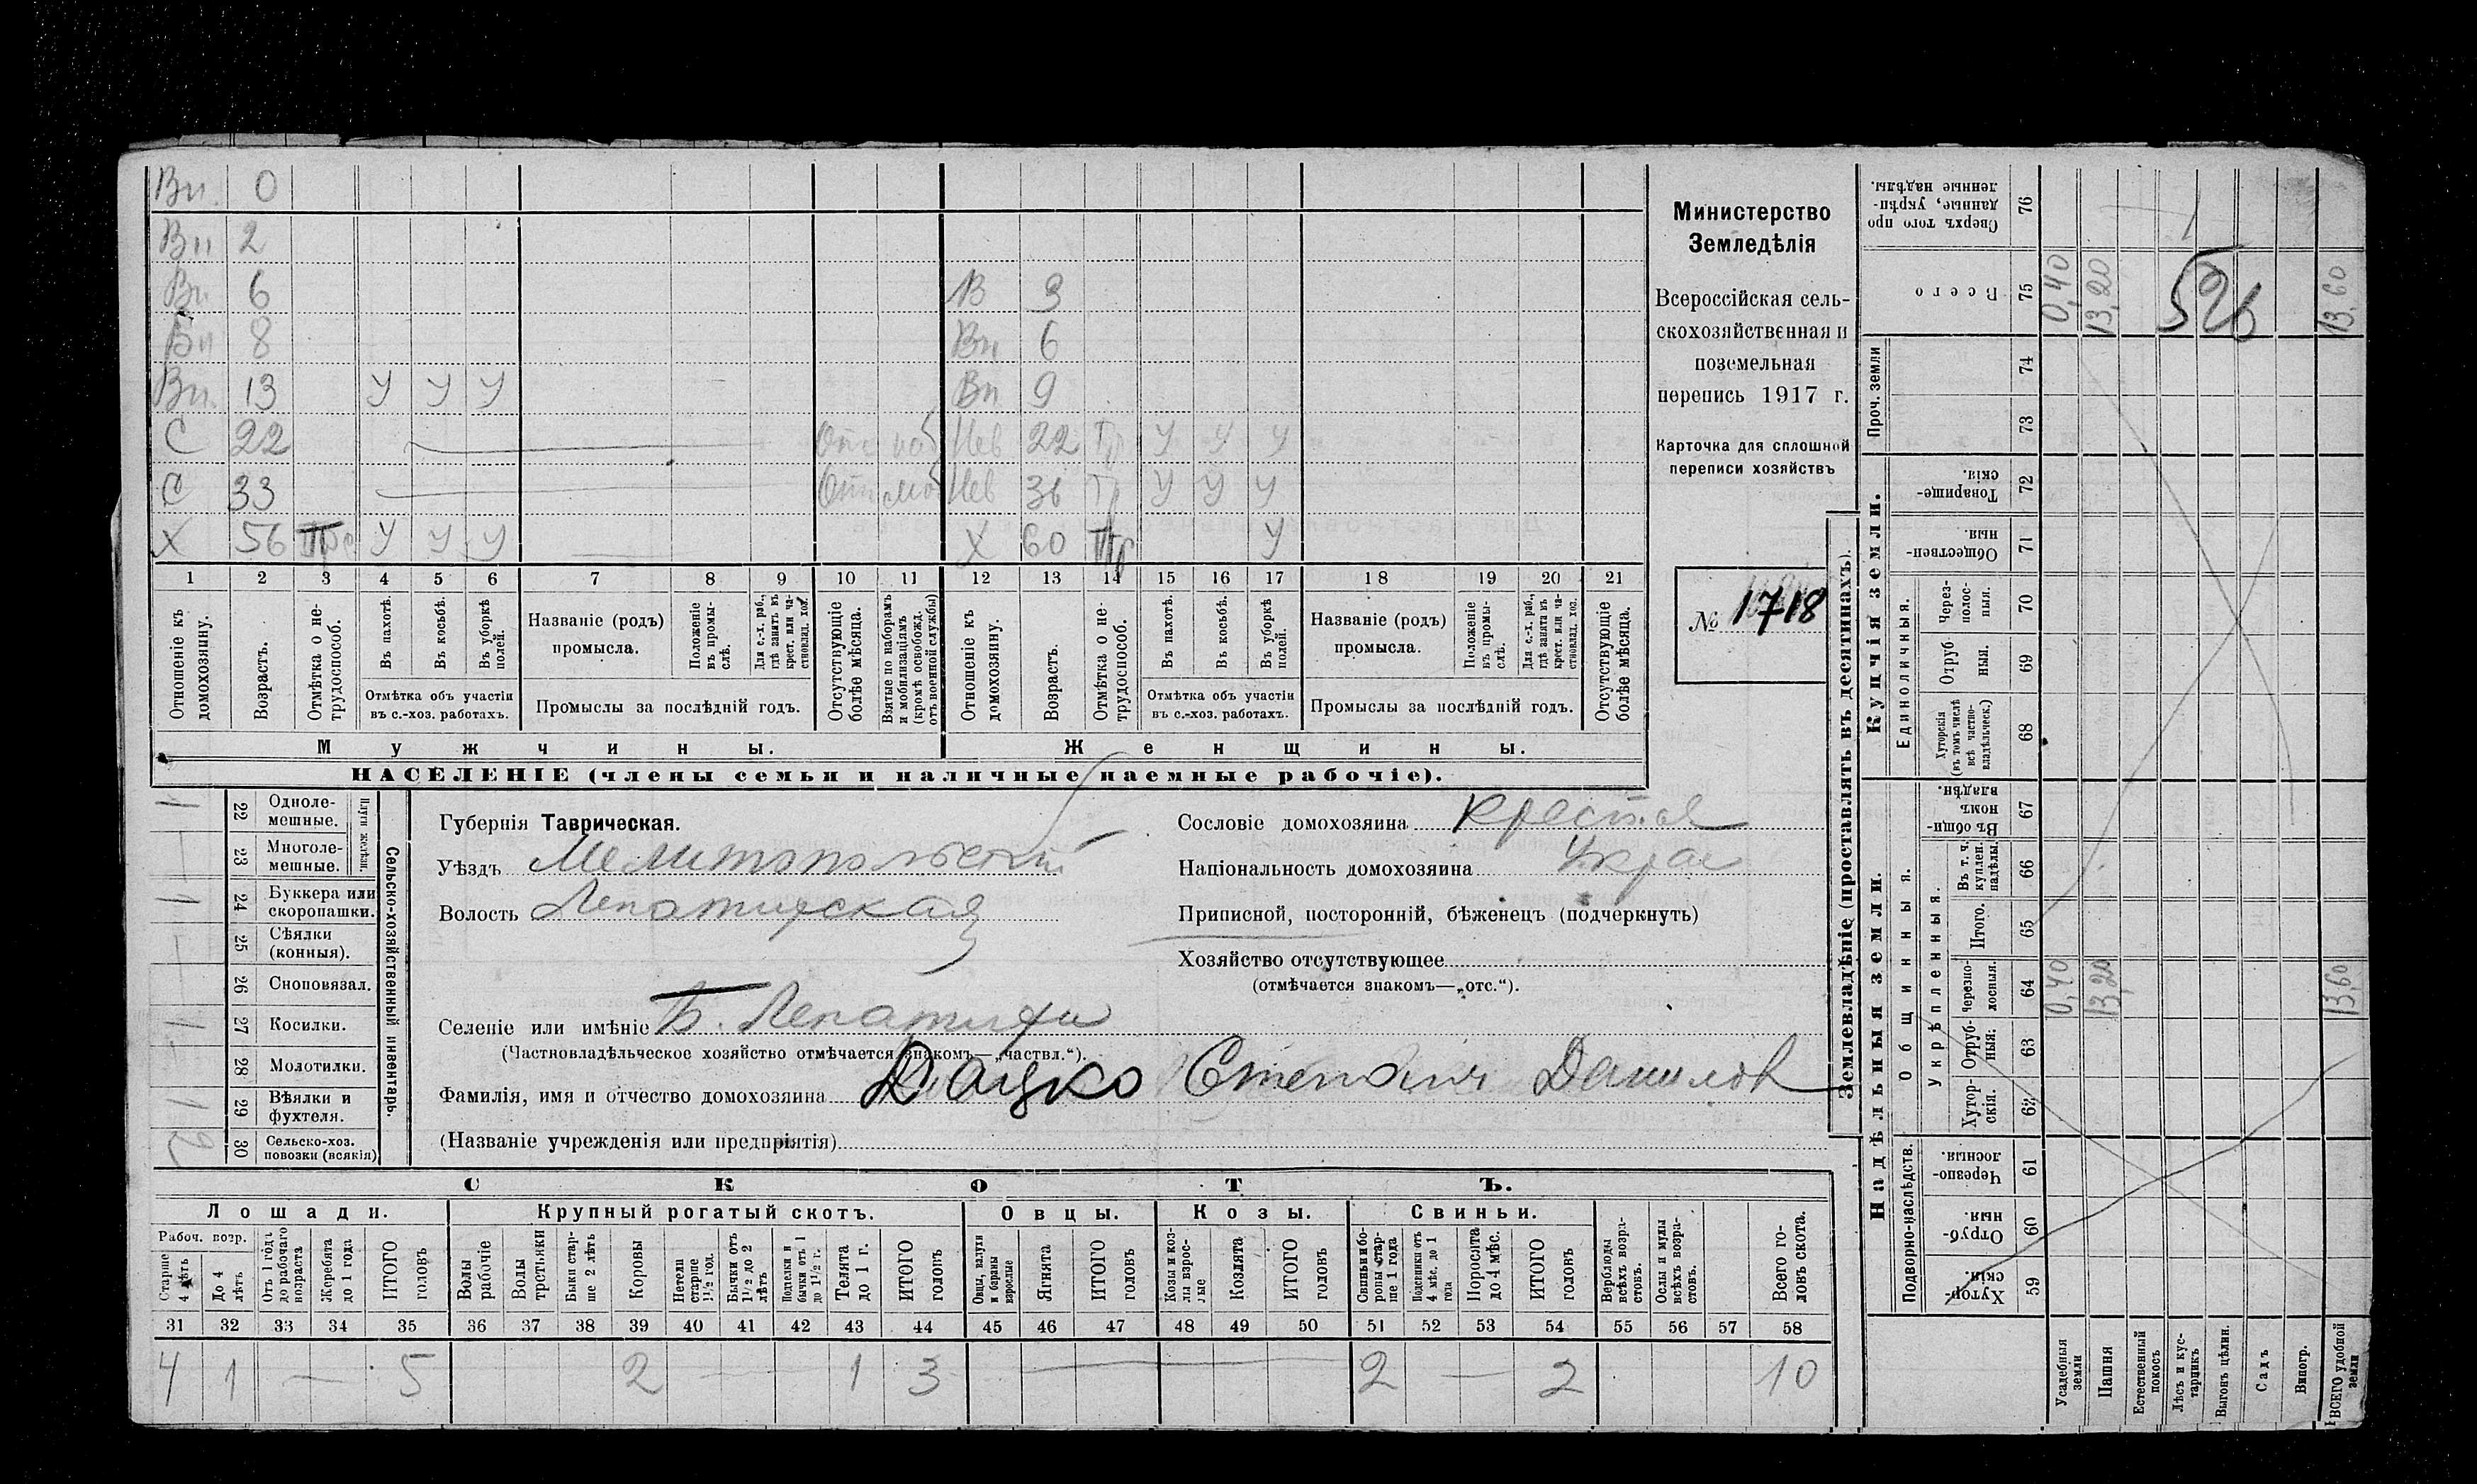 Вн. 0
Вн 2
Вн 6 В 3
Вн 8 Вн 6
Вн. 13 У У У Вн 9
С 22 Отс моб Нев 22 Тр У У У
С 33 Отс моб Нев 36 Тр У У У
Х 56 У У У Х 60 У
1 2 3 4 5 6 7 8 9 10 11 12 13 14 15 16 17 18 19 20 21
Отношеніе къ домохозяину.
Возрастъ.
Отмѣтка о нетрудоспособ.
Въ пахотѣ.
Въ косьбѣ.
Въ уборкѣ полей.
Отмѣтка объ участіи въ с.-хоз. работахъ.
Названіе (родъ) промысла.
Положеніе въ промыслѣ.
Для с.-х. раб., гдѣ занятъ въ крест. или частновлад. хоз.
Промыслы за послѣдній годъ.
Отсутствующіе болѣе мѣсяца.
Взятые по наборамъ и мобилизаціямъ (кромѣ освобожд. отъ военной службы)
Отношеніе къ домохозяину.
Возрастъ.
Отмѣтка о нетрудоспособ.
Въ пахотѣ.
Въ косьбѣ.
Въ уборкѣ полей.
Отмѣтка объ участіи въ с.-хоз. работахъ.
Названіе (родъ) промысла.
Положеніе въ промыслѣ.
Для с.-х. раб., гдѣ занята въ крест. или частновлад. хоз.
Промыслы за послѣдній годъ.
Отсутствующіе болѣе мѣсяца.
Мужчины. Женщины.
НАСЕЛЕНІЕ (члены семьи и наличные наемные рабочіе).
Министерство
Земледѣлія
Всероссійская сель-
скохозяйственная и
поземельная
перепись 1917 г.
Карточка для сплошной
переписи хозяйствъ
№ 1718
Сельско-хозяйственный инвентарь.
Плуги желѣзн.
22 Одноле-
мешные. 1
23 Многоле-
мешные. 1
24 Буккера или
скоропашки. 1
25 Сѣялки
(конныя). —
26 Сноповязал. —
27 Косилки. 1
28 Молотилки. —
29 Вѣялки и
фухтеля. 1
30 Сельско-хоз.
повозки (всякія) 2
Губернія Таврическая.
Уѣздъ Мелитопольскій
Волость Лепатихская
Селеніе или имѣніе Б. Лепатиха
(Частновладѣльческое хозяйство отмѣчается знакомъ—„частвл.“).
Фамилія, имя и отчество домохозяина Дацко Степанъ Данилов
(Названіе учрежденія или предпріятія)
Сословіе домохозяина крестья
Національность домохозяина Укра
Приписной, посторонній, бѣженецъ (подчеркнуть)
Хозяйство отсутствующее
(отмѣчается знакомъ—„отс.“).
СКОТЪ.
Лошади. Крупный рогатый скотъ. Овцы. Козы. Свиньи.
Рабоч. возр.
Старше 4 лѣтъ
До 4 лѣтъ
Отъ 1 года до рабочаго возраста
Жеребята до 1 года
ИТОГО головъ
Волы рабочіе
Волы третьяки
Быки старше 2 лѣтъ
Коровы
Нетели старше 1½ год.
Бычки отъ 1½ до 2 лѣтъ
Подтелки и бычки отъ 1 до 1½ г.
Телята до 1 г.
ИТОГО головъ
Овцы, валухи и бараны взрослые
Ягнята
ИТОГО головъ
Козы и козлы взрослые
Козлята
ИТОГО головъ
Свиньи и боровы старше 1 года
Подсвинки отъ 4 мѣс. до 1 года
Поросята до 4 мѣс.
ИТОГО головъ
Верблюды всѣхъ возрастовъ.
Ослы и мулы всѣхъ возрастовъ.
Всего головъ скота.
31 32 33 34 35 36 37 38 39 40 41 42 43 44 45 46 47 48 49 50 51 52 53 54 55 56 57 58
4 1 — 5 2 — — 1 3 — 2 — 2 10
Землевладѣніе (проставлять въ десятинахъ).
Купчія земли.
Надѣльныя земли.
Сверхъ того проданные, укрѣпленные надѣлы. 76
Всего 75 0,40 13,20 13,60
526
Проч. земли 74
73
Товарищескія 72
Общественныя 71
Единоличныя.
Черезполосныя. 70
Отрубныя. 69
Хуторскія (въ томъ числѣ всѣ частновладѣльческ.) 68
Общинныя.
Въ общинномъ владѣн. 67
Укрѣпленныя.
Въ т. ч. куплен. надѣлы. 66
Итого. 65
Черезполосныя. 64 0,40 13,20 13,60
Отрубныя. 63
Хуторскія. 62
Подворно-наслѣдств.
Черезполосныя. 61
Отрубныя. 60
Хуторскія. 59
Усадебныя земли
Пашня
Естественный покосъ
Лѣсъ и кустарникъ
Выгонъ цѣлин.
Садъ
Виногр.
ВСЕГО удобной земли